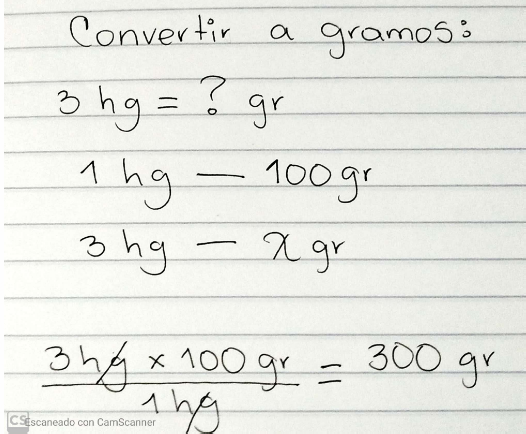 Convertir a gramos:
3 hg = ? gr
1 hg — 100 gr
3 hg — x gr
3 hg x 100 gr = 300 gr
1 hg
CS Escaneado con CamScanner